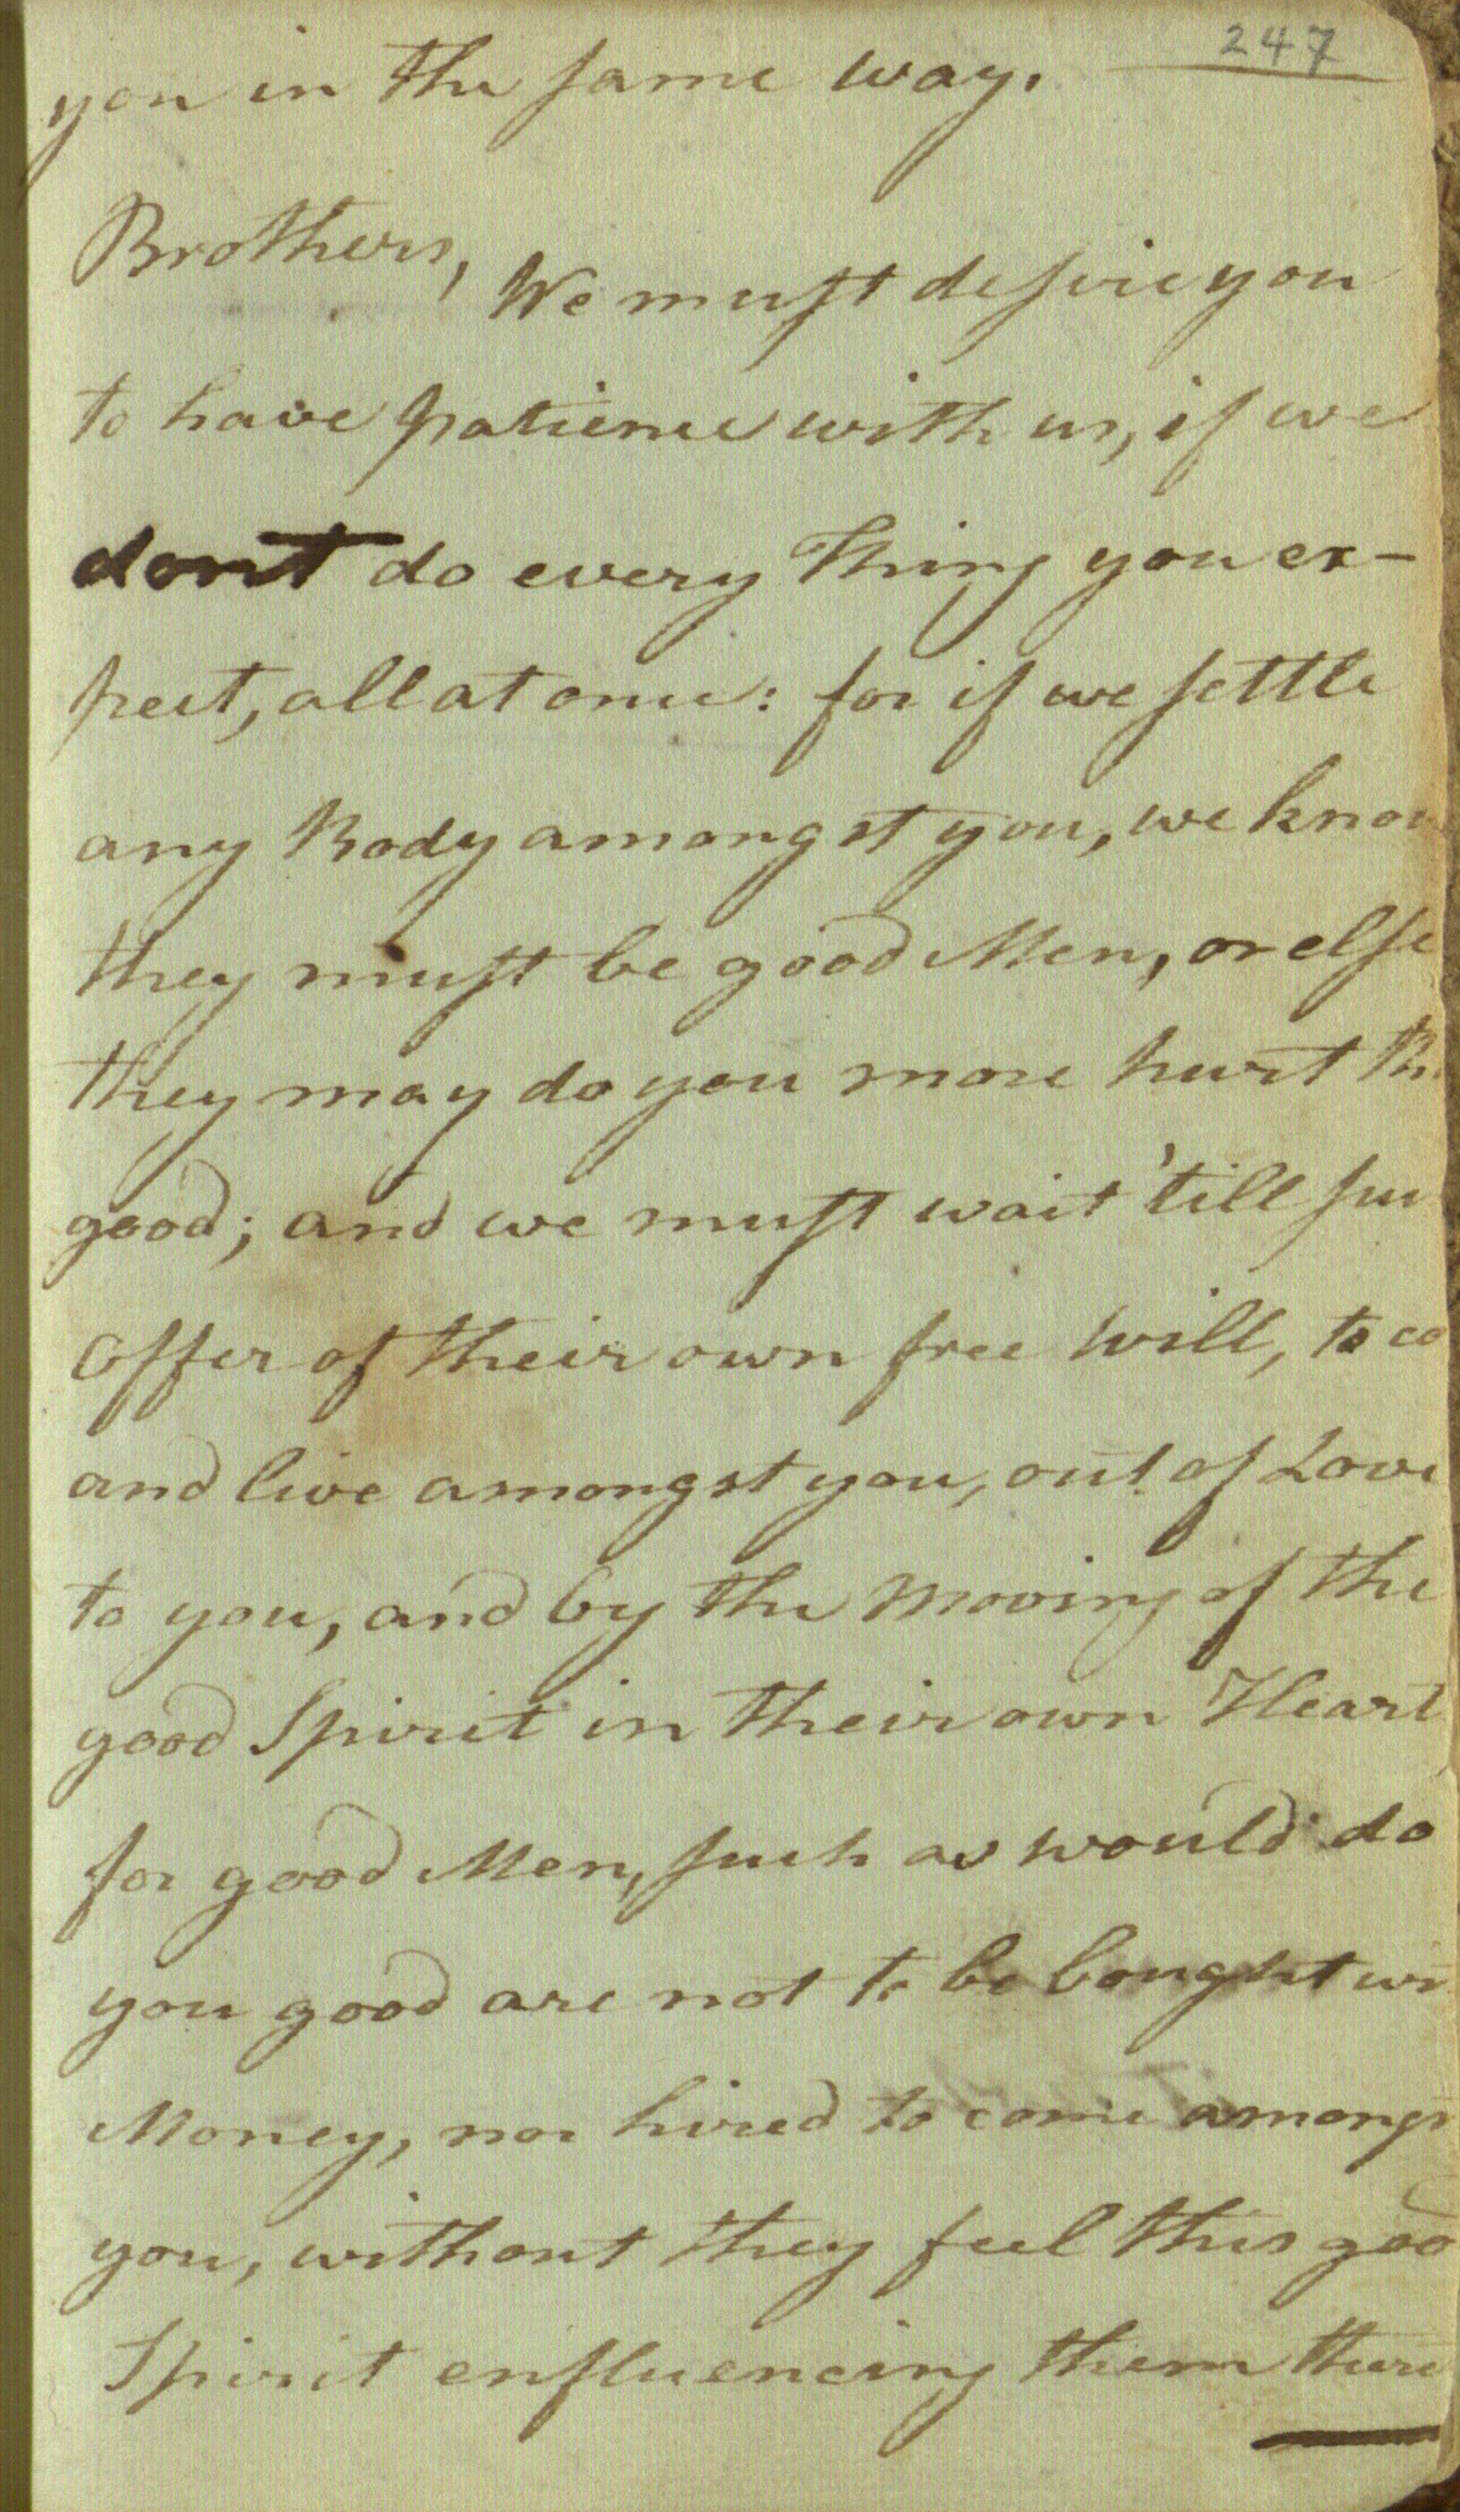 247
you in the same way.
Brothers, We must desire you
to have patience with us, if we
dont do every Thing you ex-
pect, all at once: for if we settle
any Body amongst you, we know
they must be good Men, or else
they may do you more hurt th
good; and we must wait 'till suc
offer of their own free Will, to co
and live amongst you, out of Love
to you, and by the Moving of the
good Spirit in their own Heart
for good Men, such as would do
you good are not to be bought wi
Money, nor hired to come amongs
you, without they feel this goo
Spirit enfluencing them there